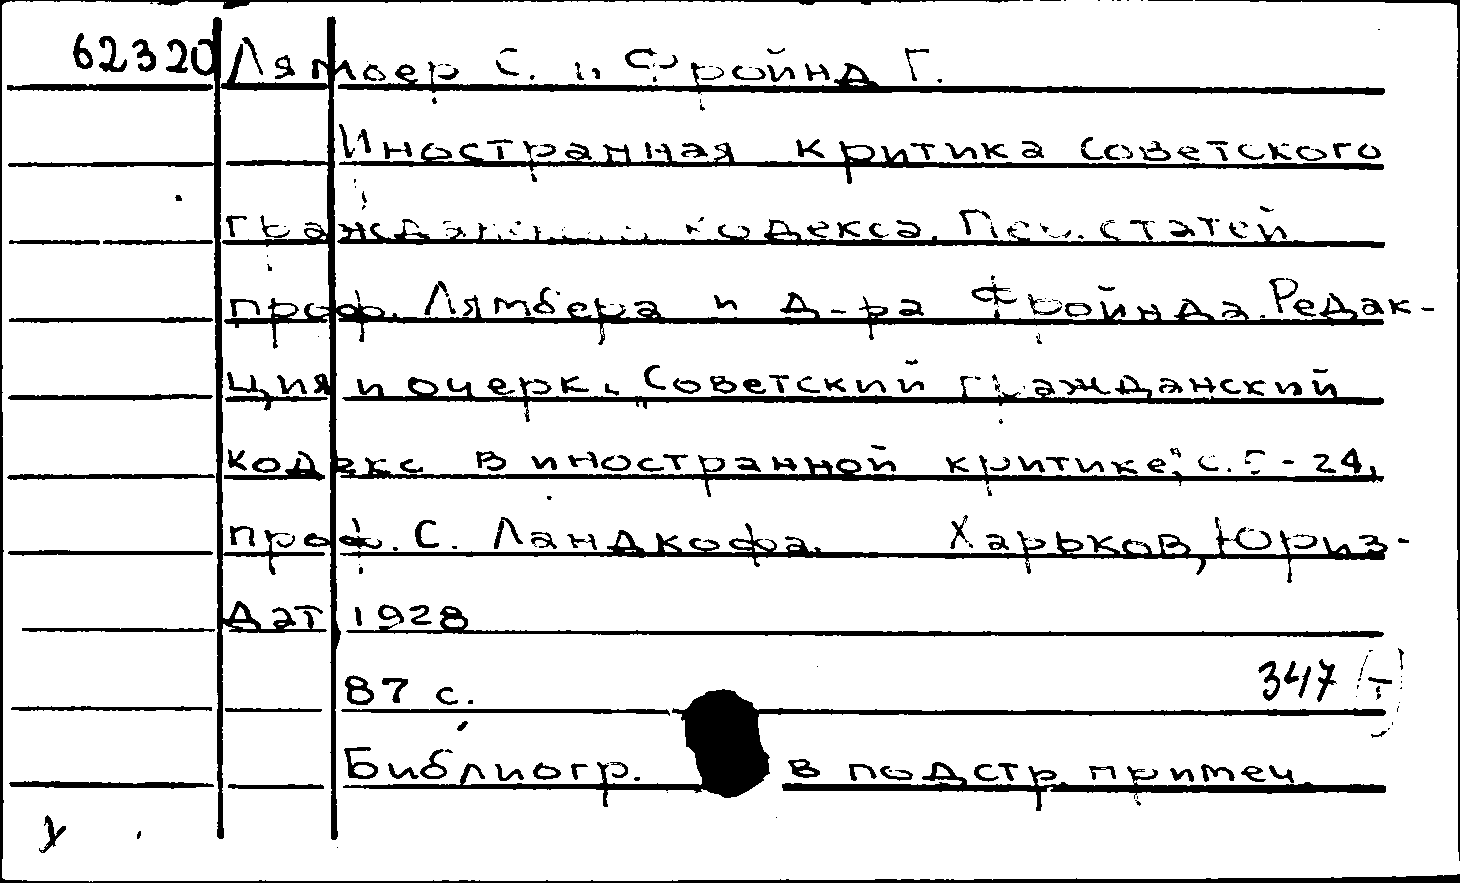 62320 Лямбер С. и Фройнд Г.
Иностранная критика советского
гражданского кодекса. Пер. статей
проф. Лямбера и д-ра Фройнда. Редак-
ция и очерк „Советский гражданский
кодекс в иностранной критике", с. 5-24,
проф. С. Ландкофа. Харьков, Юриз-
дат, 1928
87 с.
347
Библиогр. в подстр. примеч.